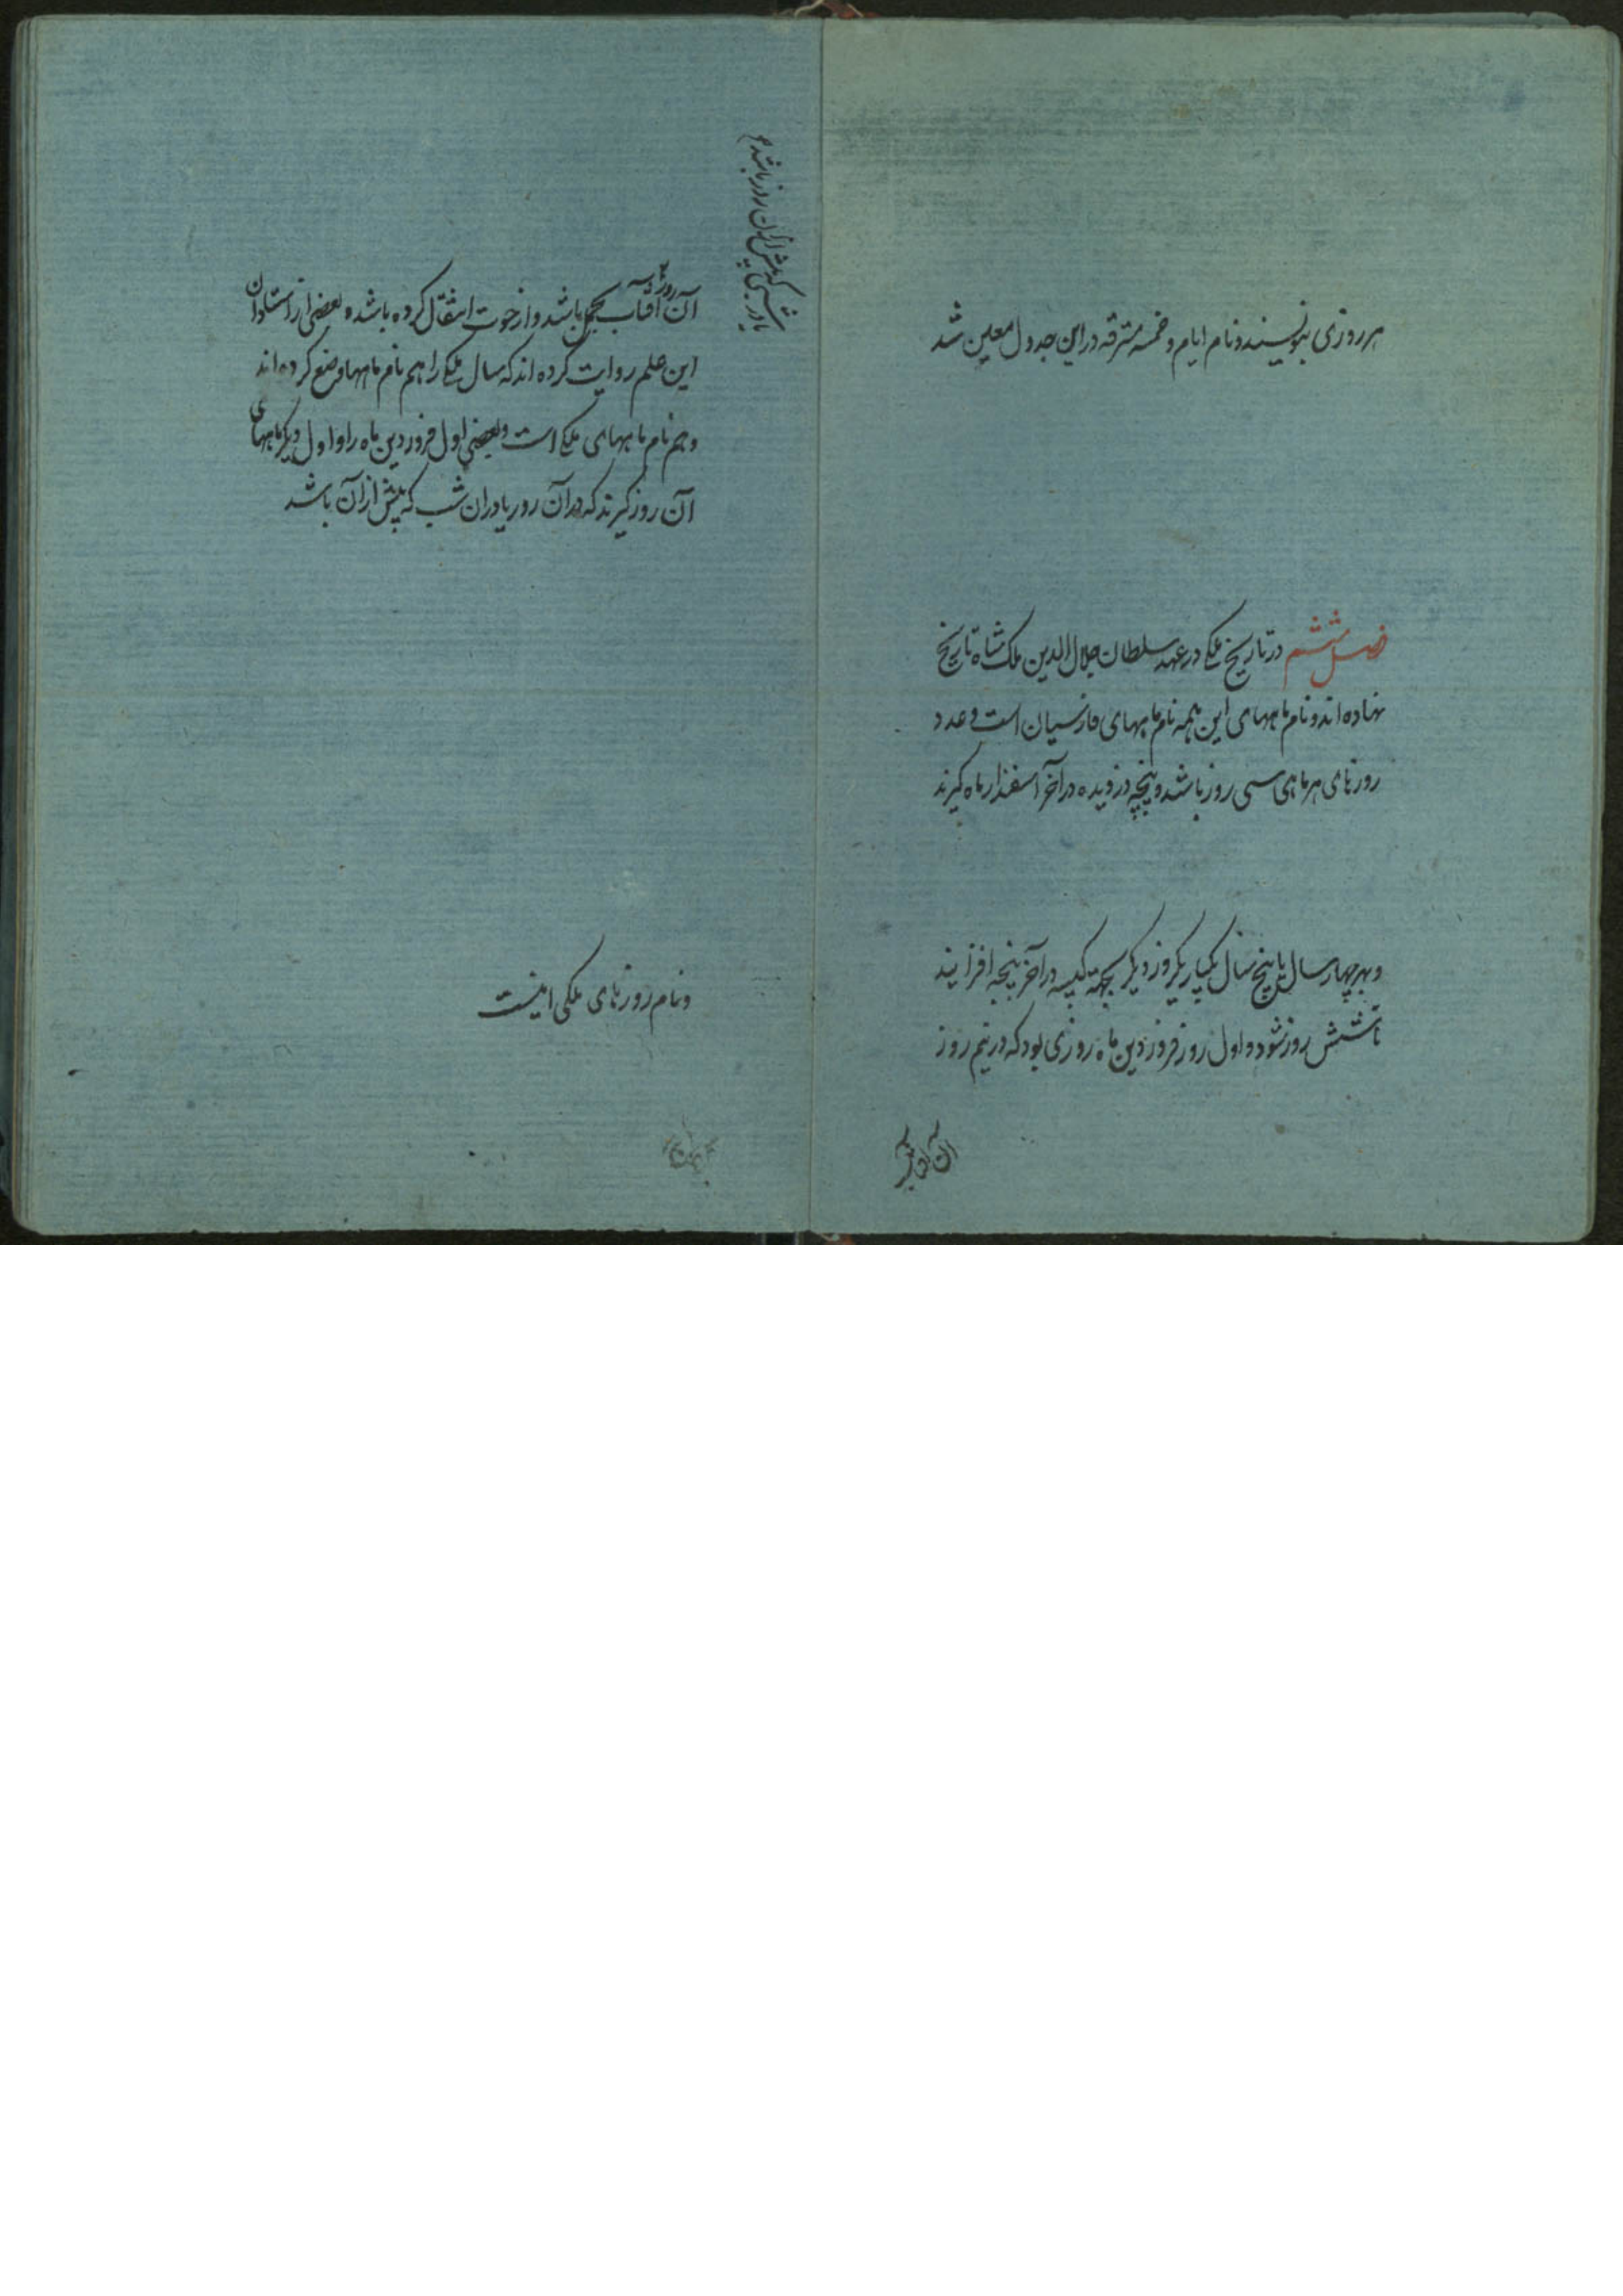 هر روزی بنویسند و نام ایام و خمسه مسترقه در این جدول معین شد
فصل ششم در تاریخ ملکی در عهد سلطان جلال الدین ملک شاه تاریخ
نهاده اند و نام ماههای این همه نام ماههای فارسیان است و عدد
روزهای هر ماهی سی روز باشد و پنجه دزدیده در آخر اسفندارماه گیرند
و بهر چهار سال یا پنج سال یکبار یکروز دیگر بجهة کبیسه در آخر پنجه افزایند
تا شش روز شود و اول روز فروردین ماه روزی بود که در نیم روز
آن آفتاب
آن روز آفتاب بحمل باشد و از حوت انتقال کرده باشد و بعضی از استادان
این علم روایت کرده اند که سال ملکی را هم نام ماهها وضع کرده اند
و هم نام ماههای ملکی است و بعضی اول فروردین ماه را و اول دیگر ماههای
آن روز گیرند که در آن روز یا در ان شب که پیش از آن باشد
یا در شبی که پیش از آن روز باشد
و نام روزهای ملکی اینست